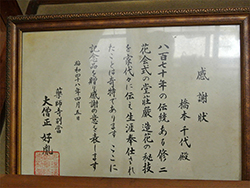 感謝状
橋本千代殿
八百七十年の伝統ある修二
花会式の堂荘厳造花の秘技
を家代々に伝え生涯奉仕され
たことは奇特であります ここに
記念品を贈り感謝の意を表します
昭和五十八年四月五日
薬師寺別当
大僧正 好胤